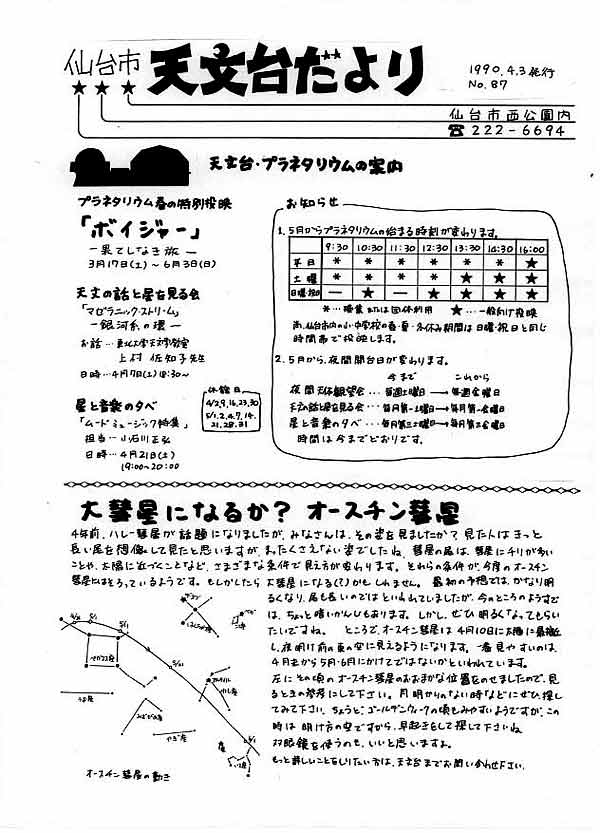 仙台市 天文台だより
1990.4.3発行
No.87
仙台市西公園内
☎222-6694
天文台・プラネタリウムの案内
プラネタリウム春の特別投映
「ボイジャー」
―果てしなき旅―
3月17日(土)～6月3日(日)
天文の話と星を見る会
「マゼラニック・ストリーム」
―銀河系の環―
お話…東北大学天文学教室
上村 佐知子先生
日時…4月7日(土)18:30～
星と音楽の夕べ
「ムードミュージック特集」
担当…小石川正弘
日時…4月21日(土)
19:00～20:00
休館日
4/2,9,16,23,30
5/1,2,4,7,14,
21,28,31
お知らせ
1. 5月からプラネタリウムの始まる時刻が変わります。
9:30 10:30 11:30 12:30 13:30 14:30 16:00
平日 * * * * * * ★
土曜 * * * * ★ ★ ★
日曜・祝日 — ★ — ★ ★ ★ ★
*…授業または団体利用 ★…一般向け投映
尚、仙台市内の小・中学校の春・夏・冬休み期間は日曜・祝日と同じ
時間帯で投映します。
2. 5月から、夜間開台日が変わります。
今まで これから
夜間天体観望会…毎週土曜日→毎週金曜日
天文の話と星を見る会…毎月第一土曜日→毎月第一金曜日
星と音楽の夕べ…毎月第三土曜日→毎月第三金曜日
時間は今までどおりです。
大彗星になるか? オースチン彗星
4年前、ハレー彗星が話題になりましたが、みなさんは、その姿を見ましたか?見た人はきっと
長い尾を想像して見たと思いますが、まったくさえない姿でしたね。彗星の尾は、彗星にチリが多い
ことや、太陽に近づくことなど、さまざまな条件で見え方が変わります。それらの条件が今度のオースチン
彗星にはそろっているようです。もしかしたら大彗星になる(?)かもしれません。最初の予想では、かなり明
るくなり、尾も長いのではといわれていましたが、今のところのようすで
は、ちょっと暗いかんじもあります。しかし、ぜひ明るくなってもらい
たいですね。ところで、オースチン彗星は4月10日に太陽に最接近
し、夜明け前の東の空に見えるようになります。一番見やすいのは、
4月末から5月・6月にかけてではないかといわれています。
左にその頃のオースチン彗星のおおまかな位置をのせましたので、見
るときの参考にして下さい。月明かりのない時などにぜひ探し
てみて下さい。ちょうど、ゴールデンウィークの頃もみやすいようですが、この
時は明け方の空ですから、早起きをして探して下さいね。
双眼鏡を使うのも、いいと思いますよ。
もっと詳しいことをしりたい方は、天文台までお問い合わせ下さい。
5/1
5/11
5/21
ペガスス座
はくちょう座
ベガ
こと座
アルタイル
わし座
みずがめ座
やぎ座
いて座
オースチン彗星の動き